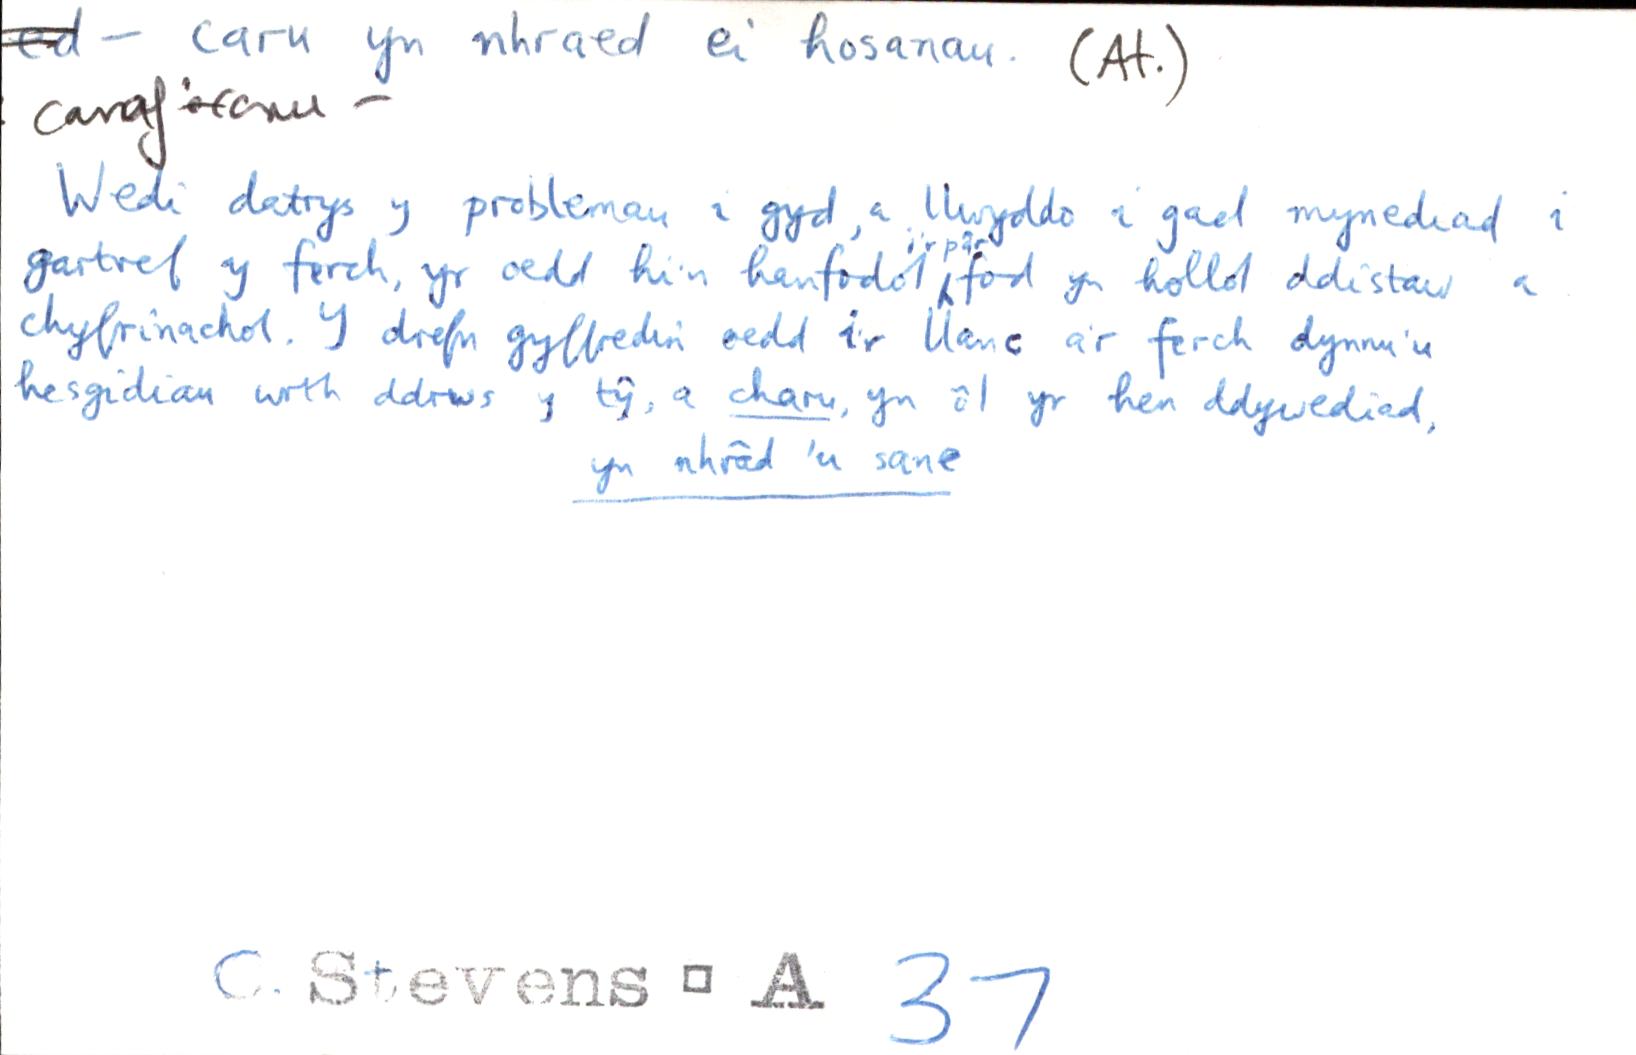 ed – caru yn nhraed ei hosanau. (At.)
: caraf: caru –
Wedi datrys y problemau i gyd, a llwyddo i gael mynediad i
gartref y ferch, yr oedd hi'n hanfodol i'r pâr fod yn hollol ddistaw a
chyfrinachol. Y drefn gyffredin oedd i'r llanc a'r ferch dynnu'u
hesgidiau wrth ddrws y tŷ, a charu, yn ôl yr hen ddywediad,
yn nhrâd 'u sane
C. Stevens ▫ A 37